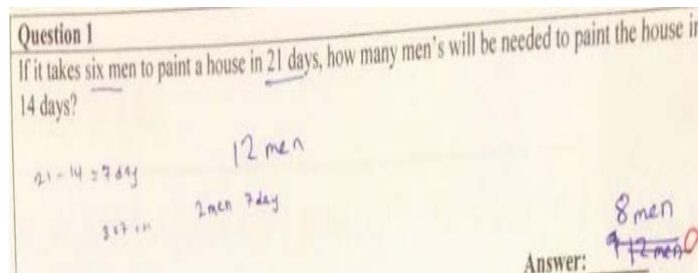 Question 1
If it takes six men to paint a house in 21 days, how many men's will be needed to paint the house in
14 days?
12 men
21 - 14 = 7 day
2 men 7 day
8 men
12 men
Answer: